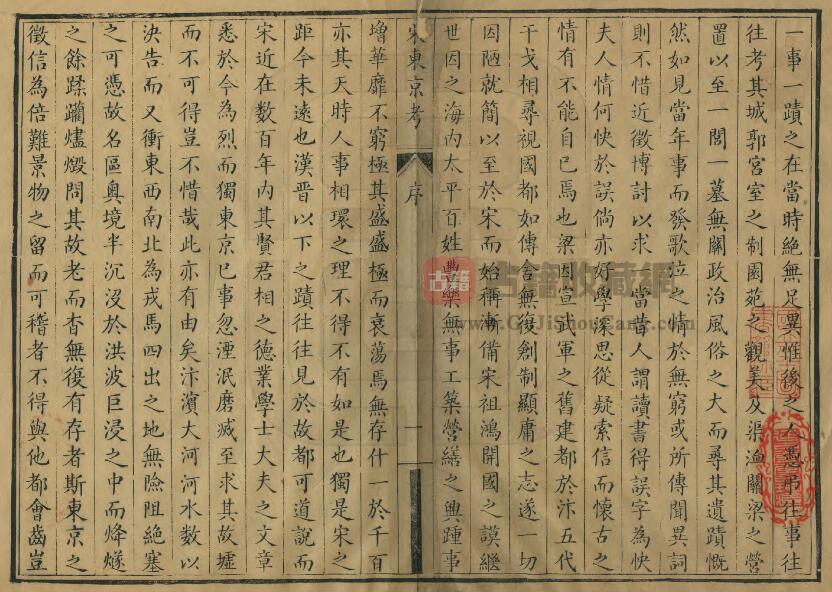 一事一蹟之在當時絕無足異惟後之人憑弔往事往
往考其城郭宮室之制園苑之觀美及渠漁關梁之營
置以至一閭一墓無關政治風俗之大而尋其遺蹟慨
然如見當年事而發歌泣之情於無窮或所傳聞異詞
則不惜近徵博討以求當昔人謂讀書得誤字為快
夫人情何快於誤倘亦好學深思從疑索信而懷古之
情有不能自已焉也梁因宣武軍之舊建都於汴五代
干戈相尋視國都如傳舍無復創制顯庸之志遂一切
因陋就簡以至於宋而始稱漸備宋祖鴻開國之謨繼
世因之海內太平百姓豐樂無事工築營繕之興踵事
宋東京考 序 一
增華靡不窮極其盛盛極而衰蕩焉無存什一於千百
亦其天時人事相環之理不得不有如是也獨是宋之
距今未遠也漢晉以下之蹟往往見於故都可道說而
宋近在數百年內其賢君相之德業學士大夫之文章
悉於今為烈而獨東京已事忽湮泯磨滅至求其故墟
而不可得豈不惜哉此亦有由矣汴濱大河河水數以
決告而又衝東西南北為戎馬四出之地無險阻絕塞
之可憑故名區奧境半沉沒於洪波巨浸之中而烽燧
之餘蹂躪燼燬問其故老而杳無復有存者斯東京之
徵信為倍難景物之留而可稽者不得與他都會齒豈
古籍
古籍收藏網
www.GuJiShouCang.com